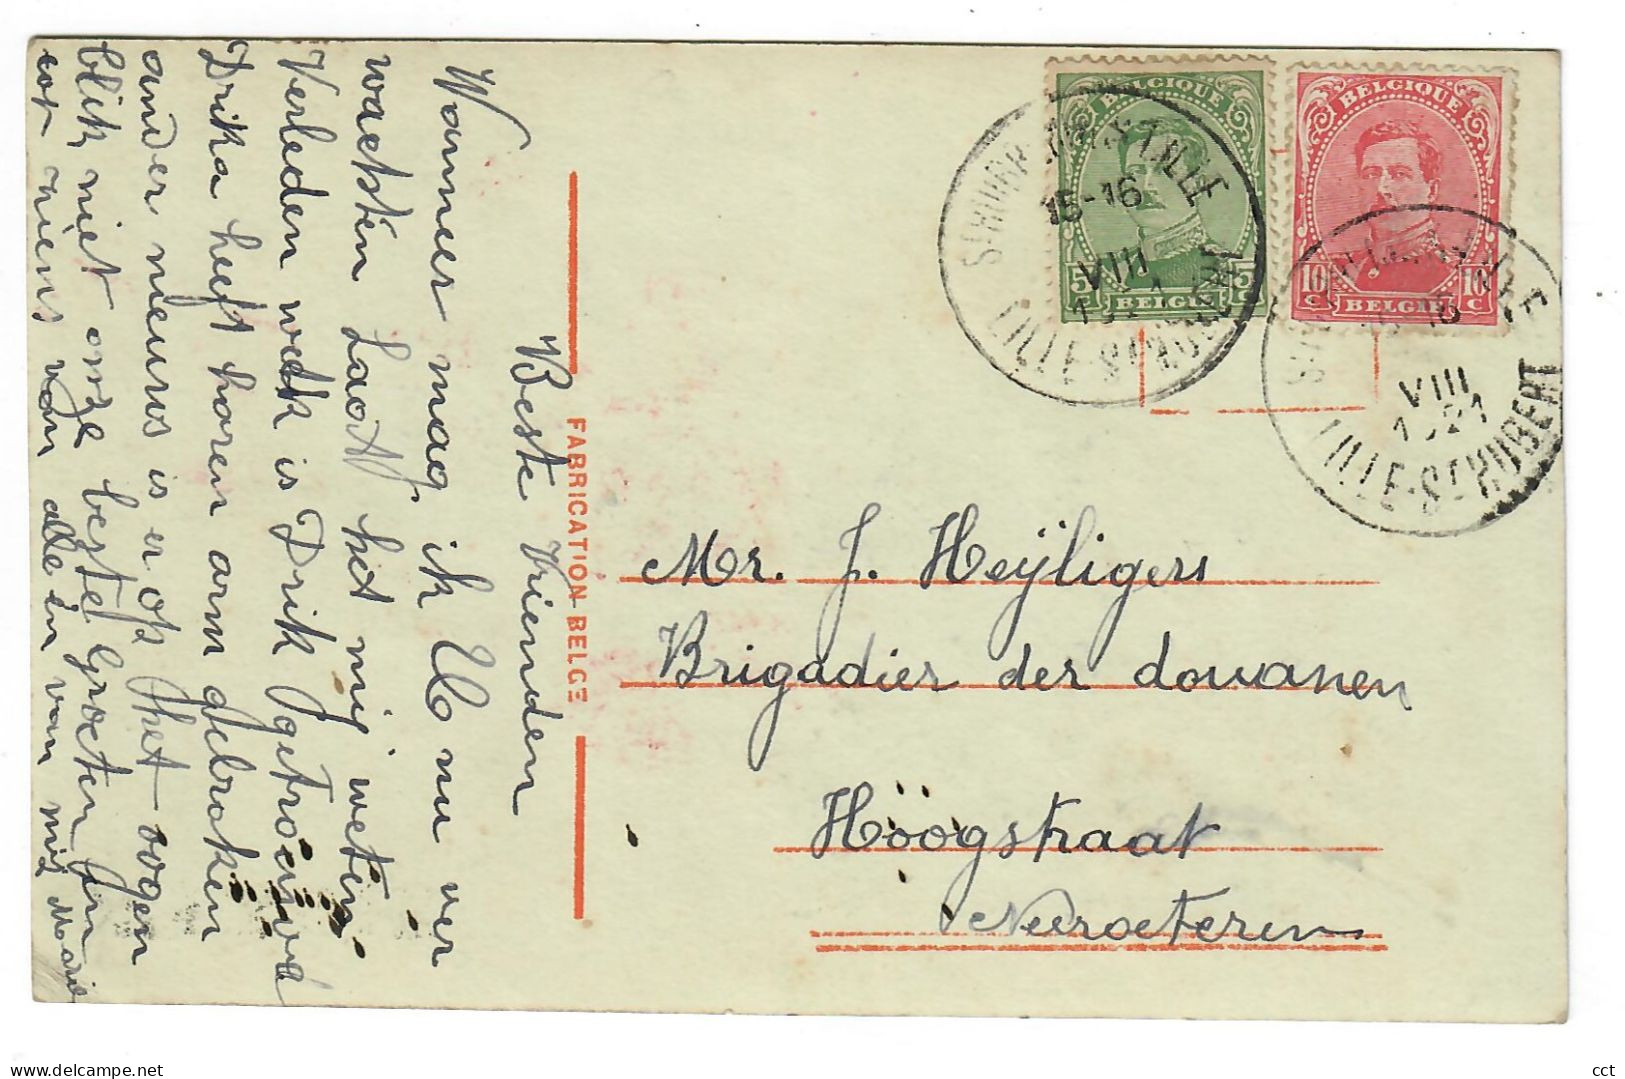 Beste Vrienden
Wanneer mag ik U nu ver
wachten Laat het mij weten
Verleden week is Drik getrouwd
Drika heeft haren arm gebroken
ander nieuws is er op het oogen
blik niet onze beste Groeten en
tot ziens van alle en van mij Marie
FABRICATION BELGE
BELGIQUE
5 C 5 C
BELGIË
BELGIQUE
10 C 10 C
BELGIË
ST HUBERT LILLE
15-16
VIII
1921
LILLE-ST HUBERT
15-16
VIII
1921
LILLE-ST HUBERT
Mr. J. Heÿligers
Brigadier der douanen
Höögstraat
Neeroeteren
cct